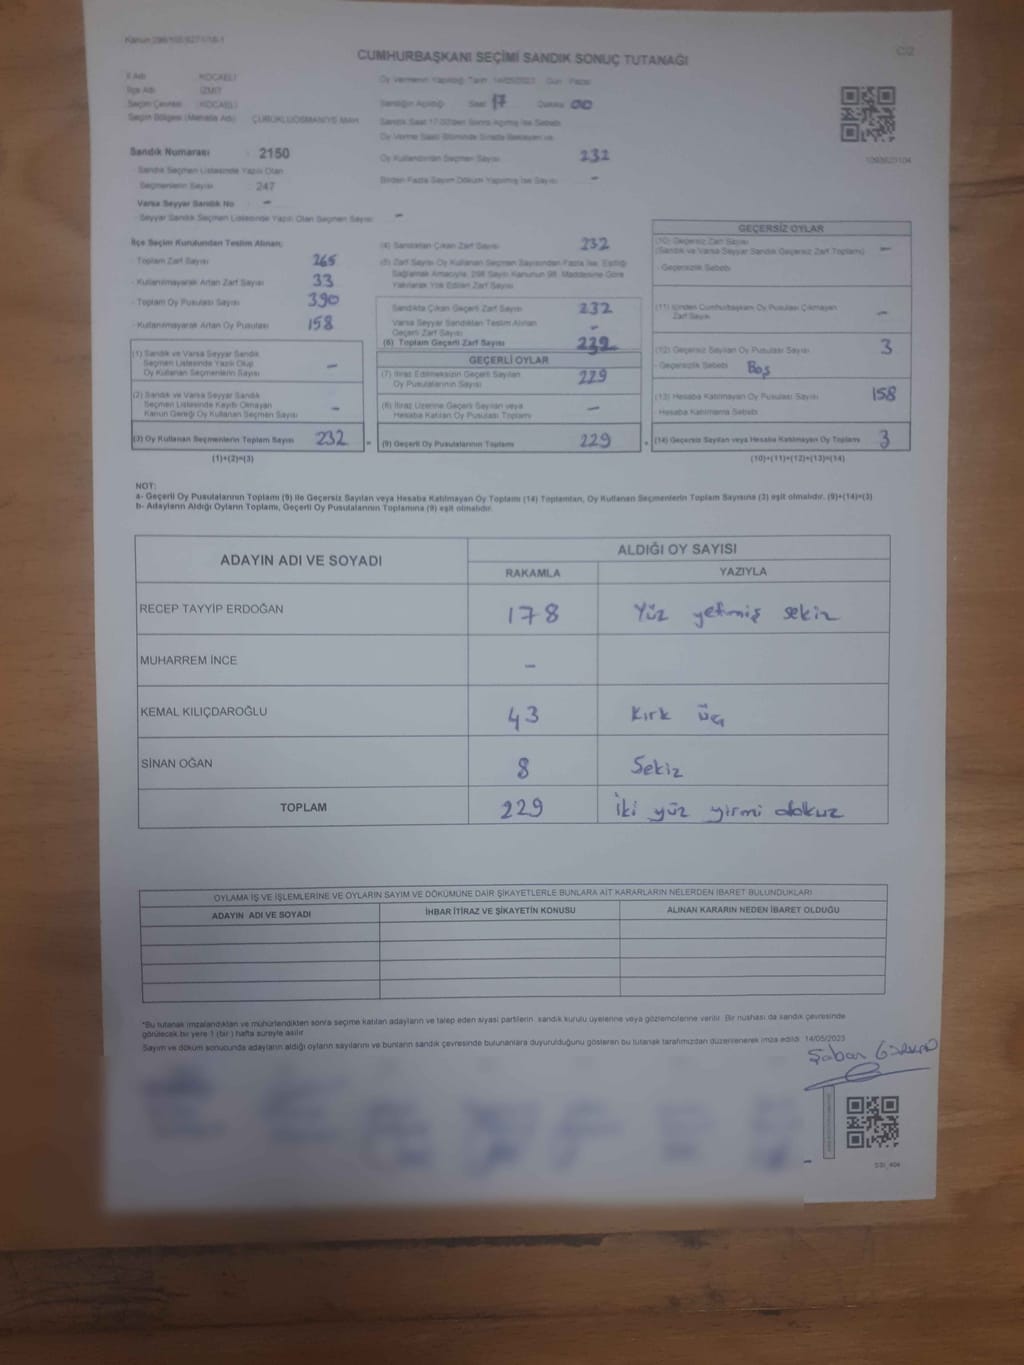 Kanun 298/105/6271/18-1
C/2
CUMHURBAŞKANI SEÇİMİ SANDIK SONUÇ TUTANAĞI
İl Adı KOCAELİ
İlçe Adı İZMİT
Seçim Çevresi (KOCAELİ)
Seçim Bölgesi (Mahalle Adı) ÇUBUKLUOSMANİYE MAH.
Oy Vermenin Yapıldığı Tarih 14/05/2023 Gün Pazar
Sandığın Açıldığı Saat 17 Dakika 00
Sandık Saat 17:00'den Sonra Açılmış İse Sebebi
Oy Verme Saati Bitiminde Sırada Bekleyen ve
Oy Kullandırılan Seçmen Sayısı 232
Birden Fazla Sayım Döküm Yapılmış İse Sayısı -
Sandık Numarası 2150
Sandık Seçmen Listesinde Yazılı Olan
Seçmenlerin Sayısı 247
Varsa Seyyar Sandık No -
Seyyar Sandık Seçmen Listesinde Yazılı Olan Seçmen Sayısı -
İlçe Seçim Kurulundan Teslim Alınan;
- Toplam Zarf Sayısı 265
- Kullanılmayarak Artan Zarf Sayısı 33
- Toplam Oy Pusulası Sayısı 390
- Kullanılmayarak Artan Oy Pusulası 158
(1) Sandık ve Varsa Seyyar Sandık
Seçmen Listesinde Yazılı Olup
Oy Kullanan Seçmenlerin Sayısı -
(2) Sandık ve Varsa Seyyar Sandık
Seçmen Listesinde Kayıtlı Olmayan
Kanun Gereği Oy Kullanan Seçmen Sayısı -
(3) Oy Kullanan Seçmenlerin Toplam Sayısı 232
(1)+(2)=(3)
(4) Sandıktan Çıkan Zarf Sayısı 232
(5) Zarf Sayısı Oy Kullanan Seçmen Sayısından Fazla İse, Eşitliği
Sağlamak Amacıyla, 298 Sayılı Kanunun 98. Maddesine Göre
Yakılarak Yok Edilen Zarf Sayısı
Sandıkta Çıkan Geçerli Zarf Sayısı 232
Varsa Seyyar Sandıktan Teslim Alınan
Geçerli Zarf Sayısı -
(6) Toplam Geçerli Zarf Sayısı 232
GEÇERLİ OYLAR
(7) İtiraz Edilmeksizin Geçerli Sayılan
Oy Pusulalarının Sayısı 229
(8) İtiraz Üzerine Geçerli Sayılan veya
Hesaba Katılan Oy Pusulası Toplamı -
(9) Geçerli Oy Pusulalarının Toplamı 229
GEÇERSİZ OYLAR
(10) Geçersiz Zarf Sayısı
(Sandık ve Varsa Seyyar Sandık Geçersiz Zarf Toplamı) -
- Geçersizlik Sebebi
(11) İçinden Cumhurbaşkanı Oy Pusulası Çıkmayan
Zarf Sayısı -
(12) Geçersiz Sayılan Oy Pusulası Sayısı 3
- Geçersizlik Sebebi Boş
(13) Hesaba Katılmayan Oy Pusulası Sayısı 158
Hesaba Katılmama Sebebi
(14) Geçersiz Sayılan veya Hesaba Katılmayan Oy Toplamı 3
(10)+(11)+(12)+(13)=(14)
NOT:
a- Geçerli Oy Pusulalarının Toplamı (9) ile Geçersiz Sayılan veya Hesaba Katılmayan Oy Toplamı (14) Toplamları, Oy Kullanan Seçmenlerin Toplam Sayısına (3) eşit olmalıdır. (9)+(14)=(3)
b- Adayların Aldığı Oyların Toplamı, Geçerli Oy Pusulalarının Toplamına (9) eşit olmalıdır.
ADAYIN ADI VE SOYADI
ALDIĞI OY SAYISI
RAKAMLA YAZIYLA
RECEP TAYYİP ERDOĞAN 178 Yüz yetmiş sekiz
MUHARREM İNCE -
KEMAL KILIÇDAROĞLU 43 Kırk üç
SİNAN OĞAN 8 Sekiz
TOPLAM 229 İki yüz yirmi dokuz
OYLAMA İŞ VE İŞLEMLERİNE VE OYLARIN SAYIM VE DÖKÜMÜNE DAİR ŞİKAYETLERLE BUNLARA AİT KARARLARIN NELERDEN İBARET BULUNDUKLARI
ADAYIN ADI VE SOYADI İHBAR İTİRAZ VE ŞİKAYETİN KONUSU ALINAN KARARIN NEDEN İBARET OLDUĞU
*Bu tutanak imzalandıktan ve mühürlendikten sonra seçime katılan adayların ve talep eden siyasi partilerin sandık kurulu üyelerine veya gözlemcilerine verilir. Bir nüshası da sandık çevresinde
görülecek bir yere 1 (bir) hafta süreyle asılır.
Sayım ve döküm sonucunda adayların aldığı oyların sayılarını ve bunların sandık çevresinde bulunanlara duyurulduğunu gösteren bu tutanak tarafımızdan düzenlenerek imza edildi. 14/05/2023
Şaban